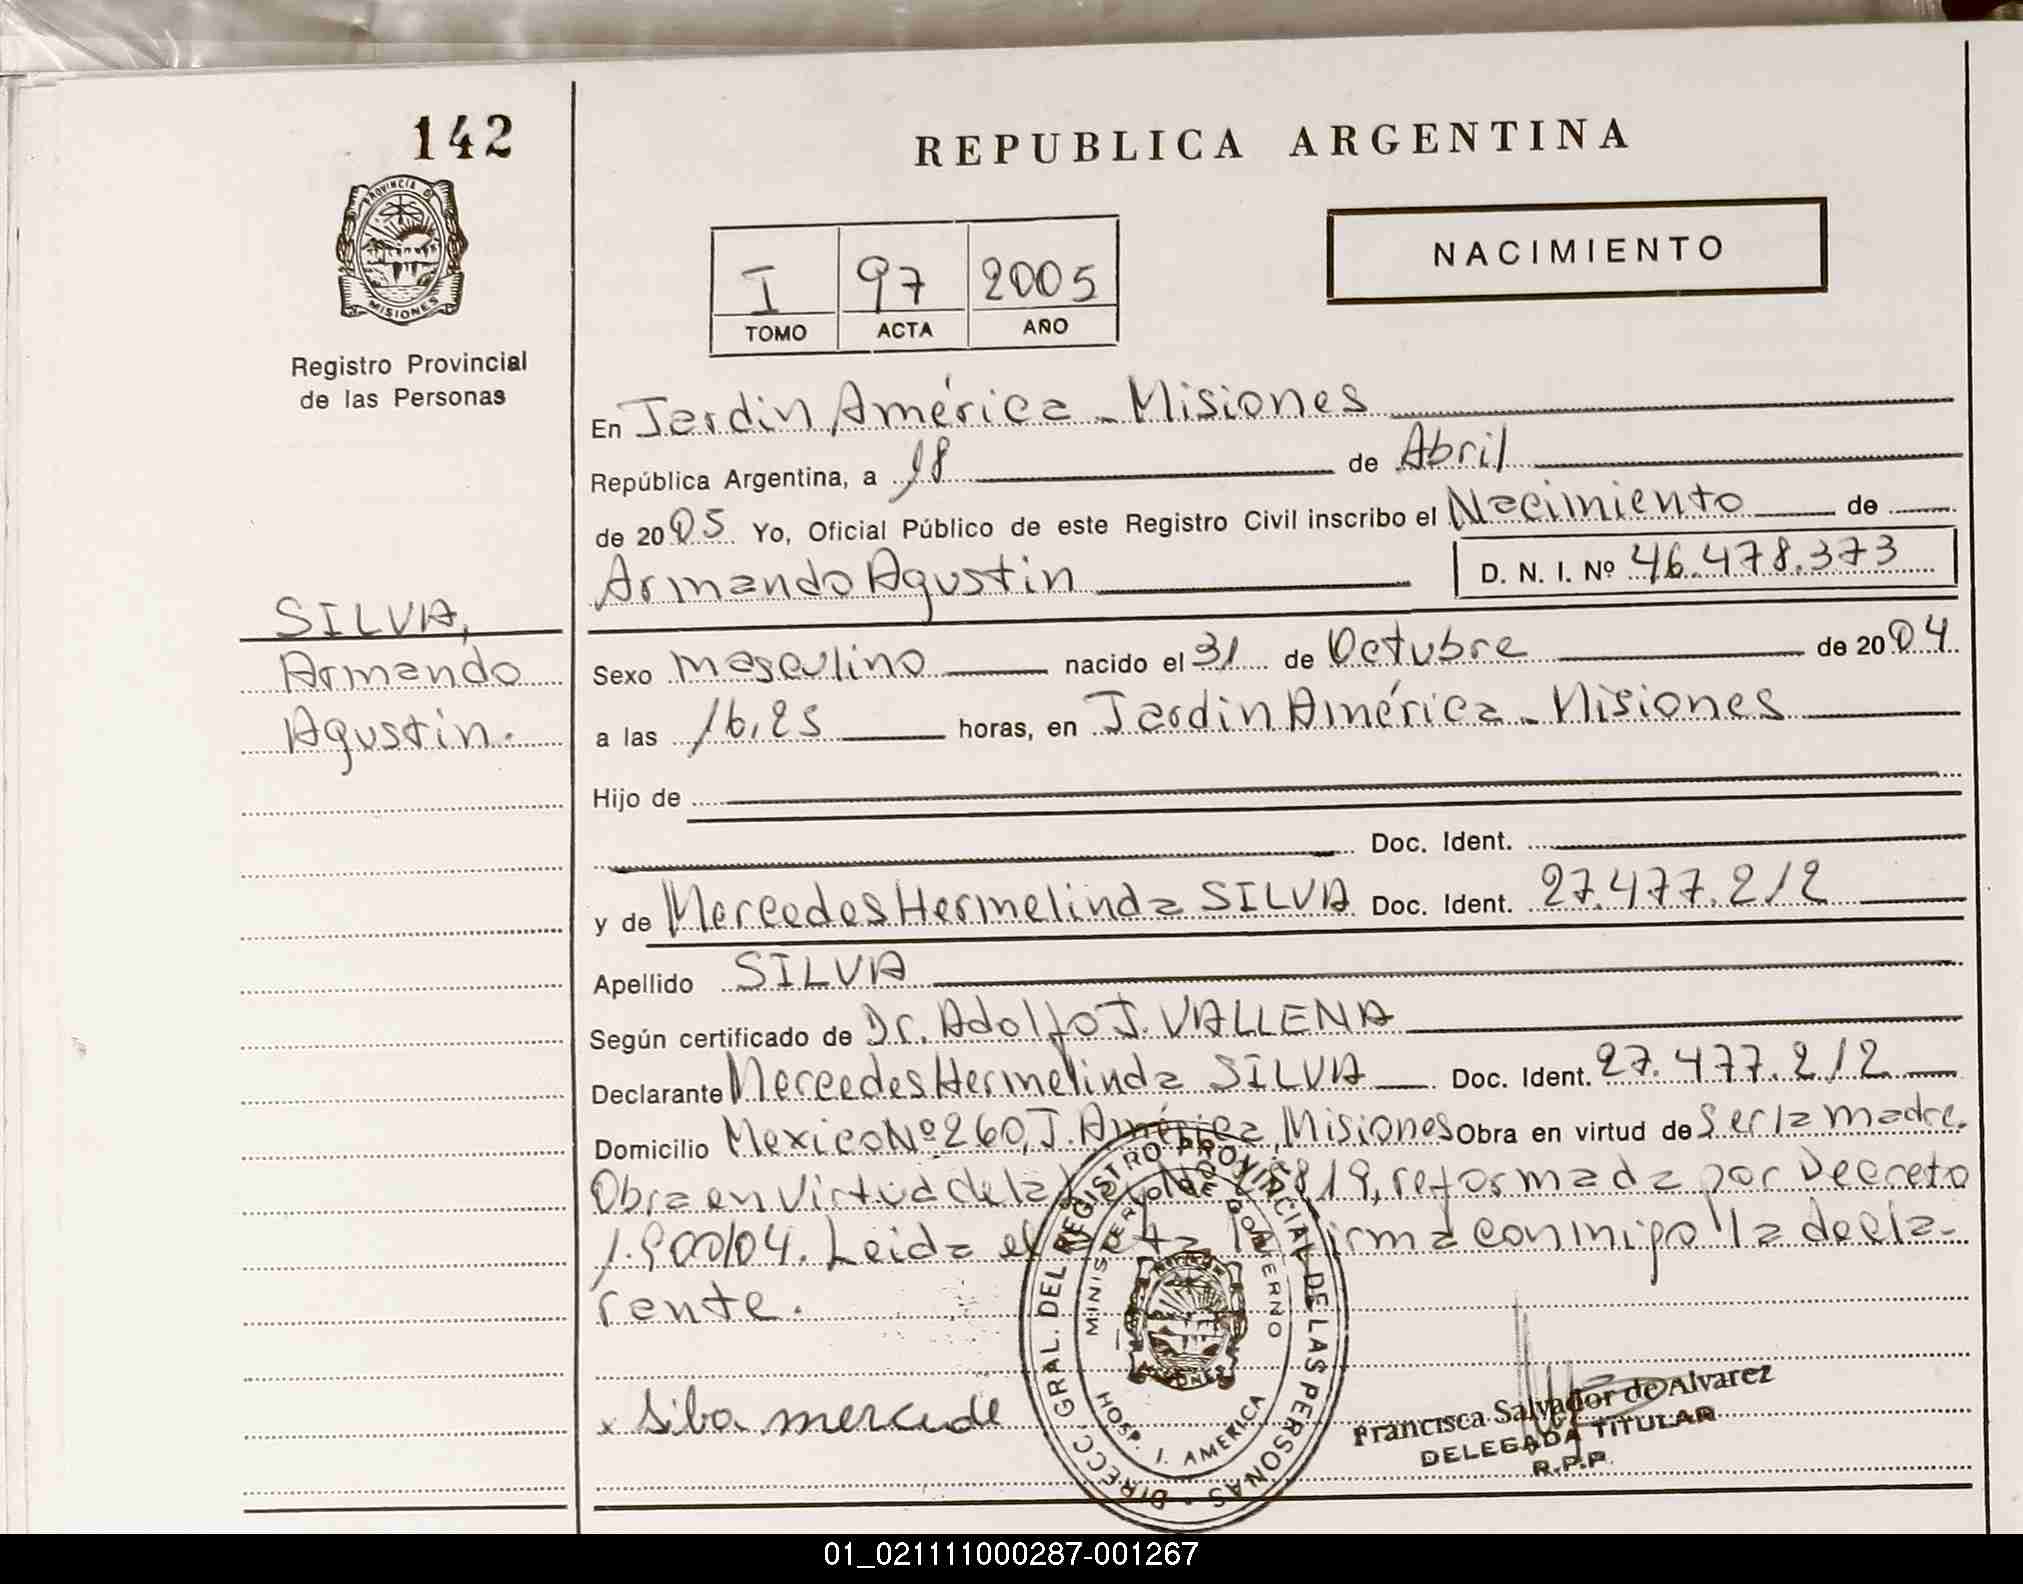 142
REPUBLICA ARGENTINA
PROVINCIA DE MISIONES
NACIMIENTO
I 97 2005
TOMO ACTA AÑO
Registro Provincial
de las Personas
En Jardin América - Misiones
República Argentina, a 18 de Abril
de 2005 Yo, Oficial Público de este Registro Civil inscribo el Nacimiento de
Armando Agustin D. N. I. Nº 46.478.373
SILVA,
Armando
Agustin.
Sexo masculino nacido el 31 de Octubre de 2004
a las 16,25 horas, en Jardin América - Misiones
Hijo de
Doc. Ident.
y de Mercedes Hermelinda SILVA Doc. Ident. 27.477.212
Apellido SILVA
Según certificado de Dr. Adolfo J. VALLENA
Declarante Mercedes Hermelinda SILVA Doc. Ident. 27.477.212
Domicilio Mexico Nº 260, J. América, Misiones Obra en virtud de Ser la madre.
Obra en virtud de la 819, reformada por Decreto
1.900/04. Leida el acta la firma conmigo la decla-
rante.
x Silva mercede
DIRECC GRAL. DEL REGISTRO PROVINCIAL DE LAS PERSONAS
MINISTERIO DE GOBIERNO
HOSP. J. AMERICA
Francisca Salvador de Alvarez
DELEGADA TITULAR
R.P.P.
01_021111000287-001267